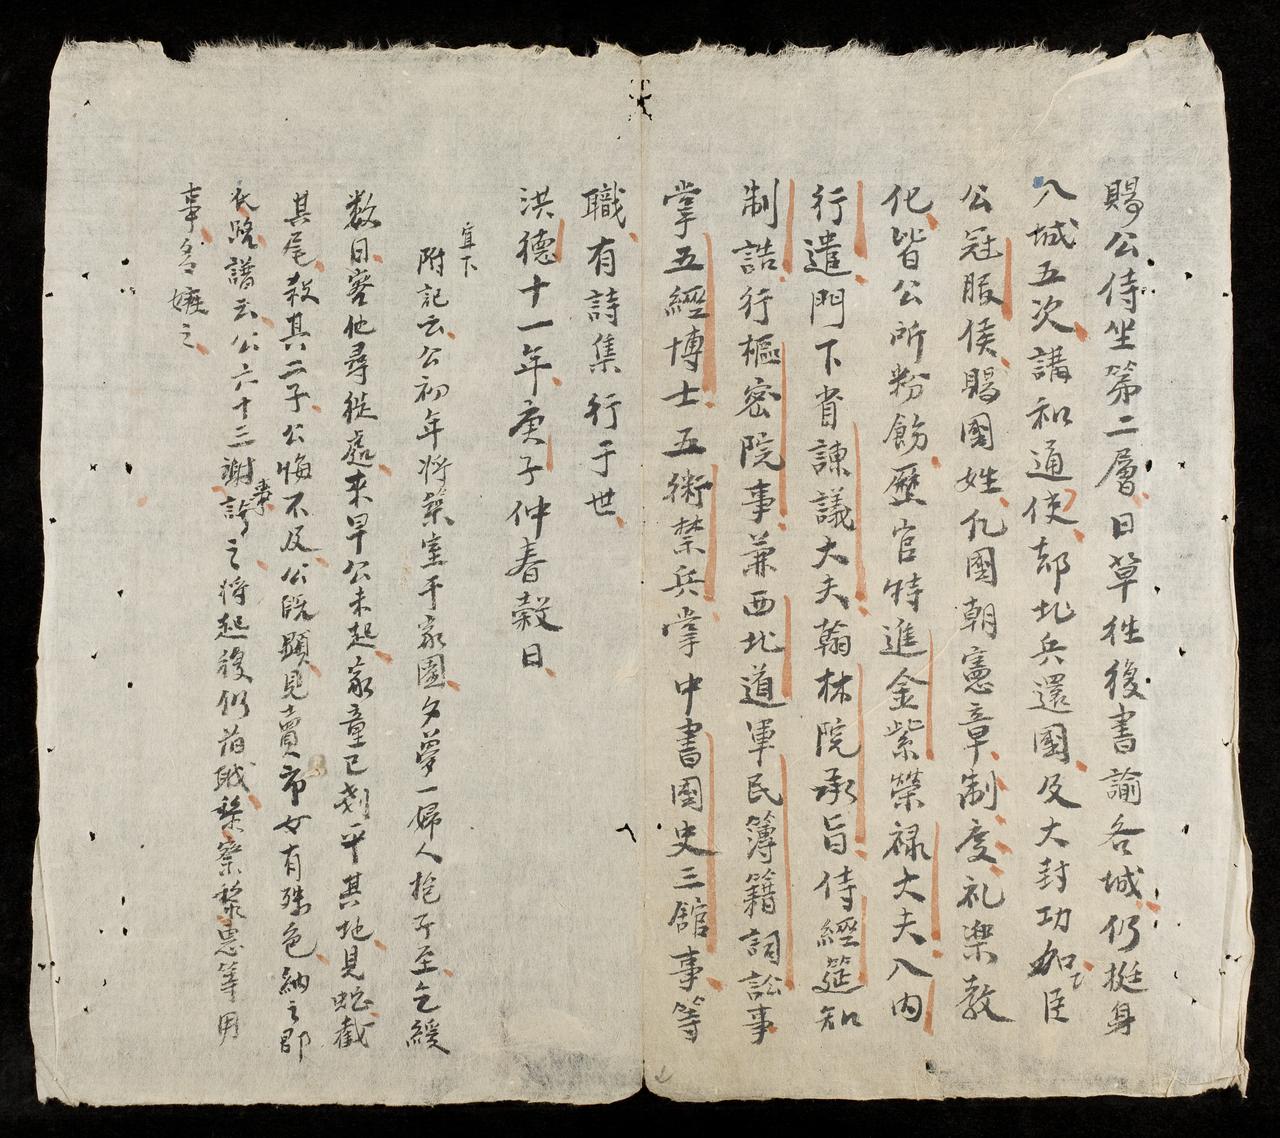 賜公侍坐第二層日草往後書諭各城仍挺身
入城五次講和通使却北兵還國及大封功加臣
公冠服侯賜國姓凡國朝憲章制度礼楽教
化皆公所粉飭歷官特進金紫榮禄大夫入内
行遣門下省諫議大夫翰林院承旨侍經筵知
制誥行樞密院事兼西北道軍民簿籍詞訟事
掌五經博士五術禁兵掌中書國史三舘事等
職有詩集行于世
洪德十一年庚子仲春穀日
宜下
附記云公初年将築室于家園夕夢一婦人抱子至乞緩
数日容他尋徙處来早公未起家童已剗平其地見蛇截
其尾殺其二子公悔不及公既顯見賣市女有殊色納之即
氏路譜云公六十三謝事許之将起復仍前職黎察黎恩等用
事多嫉之